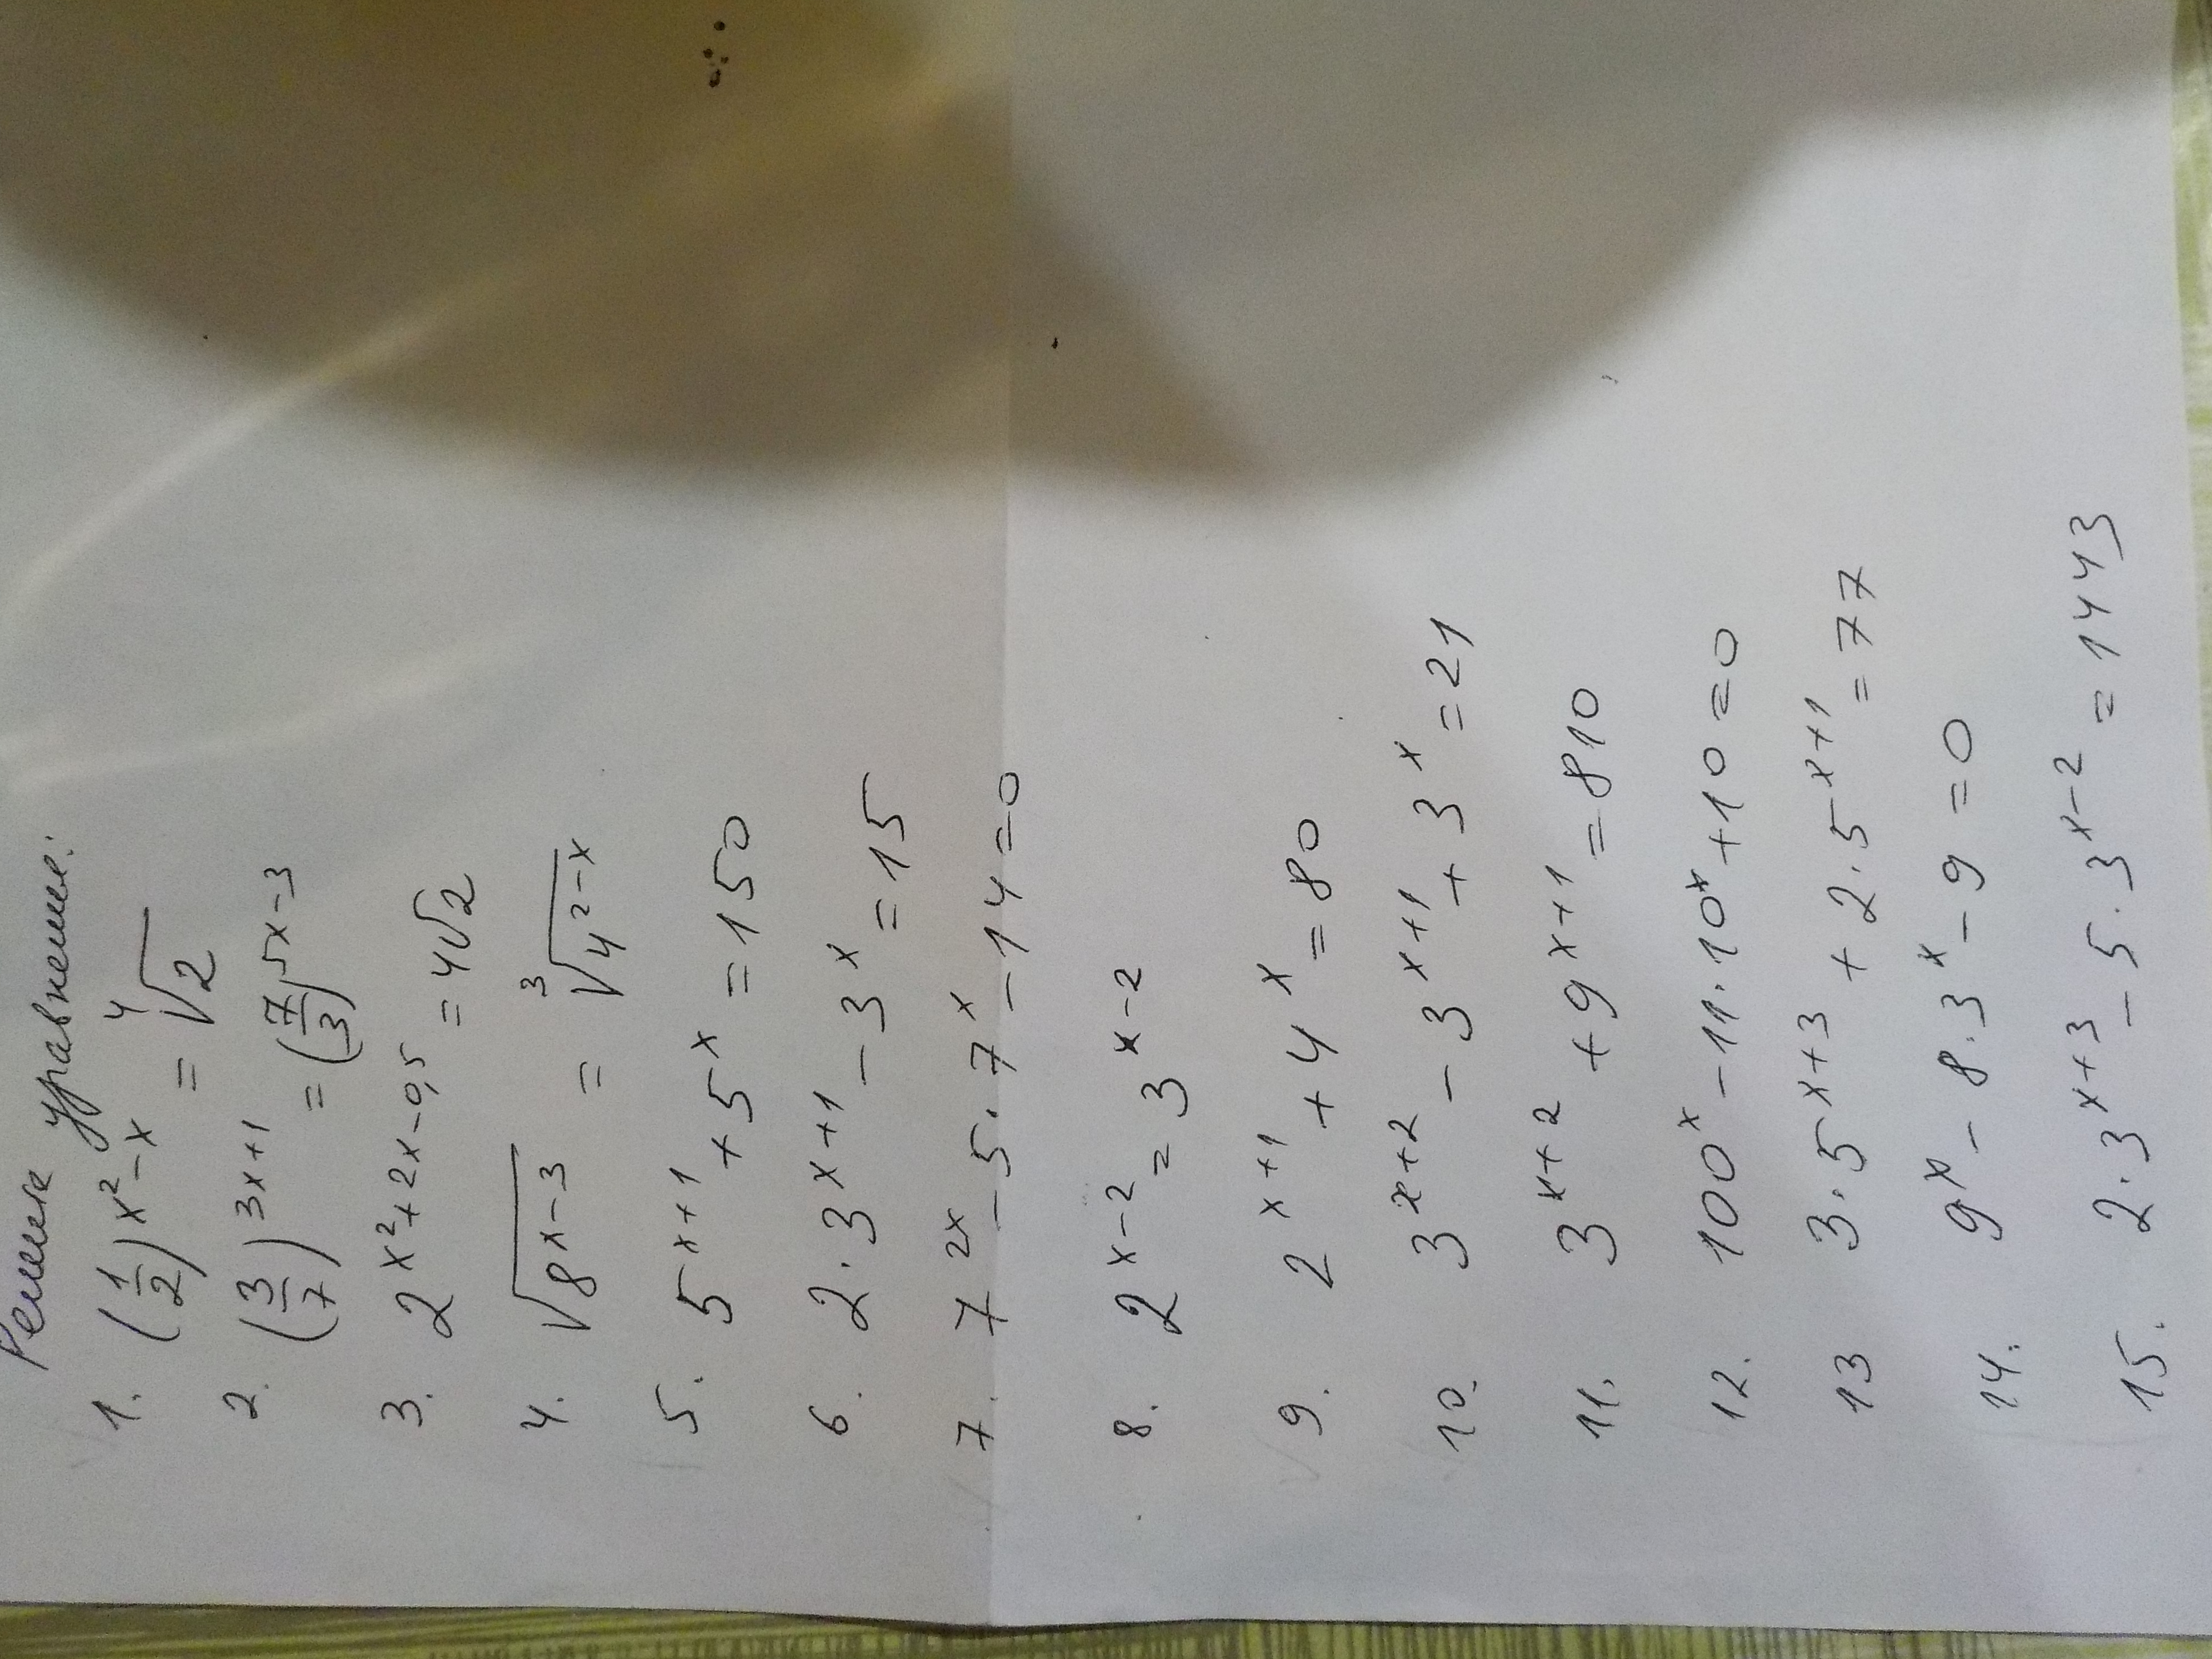 Решите уравнение:
1. (1/2)^(x²-x) = ⁴√2
2. (3/7)^(3x+1) = (7/3)^(5x-3)
3. 2^(x²+2x-0,5) = 4√2
4. √(8^(x-3)) = ³√(4^(2-x))
5. 5^(x+1) + 5^x = 150
6. 2·3^(x+1) - 3^x = 15
7. 7^(2x) - 5·7^x - 14 = 0
8. 2^(x-2) = 3^(x-2)
9. 2^(x+1) + 4^x = 80
10. 3^(x+2) - 3^(x+1) + 3^x = 21
11. 3^(x+2) + 9^(x+1) = 810
12. 100^x - 11·10^x + 10 = 0
13 3·5^(x+3) + 2·5^(x+1) = 77
14. 9^x - 8·3^x - 9 = 0
15. 2·3^(x+3) - 5·3^(x-2) = 1443